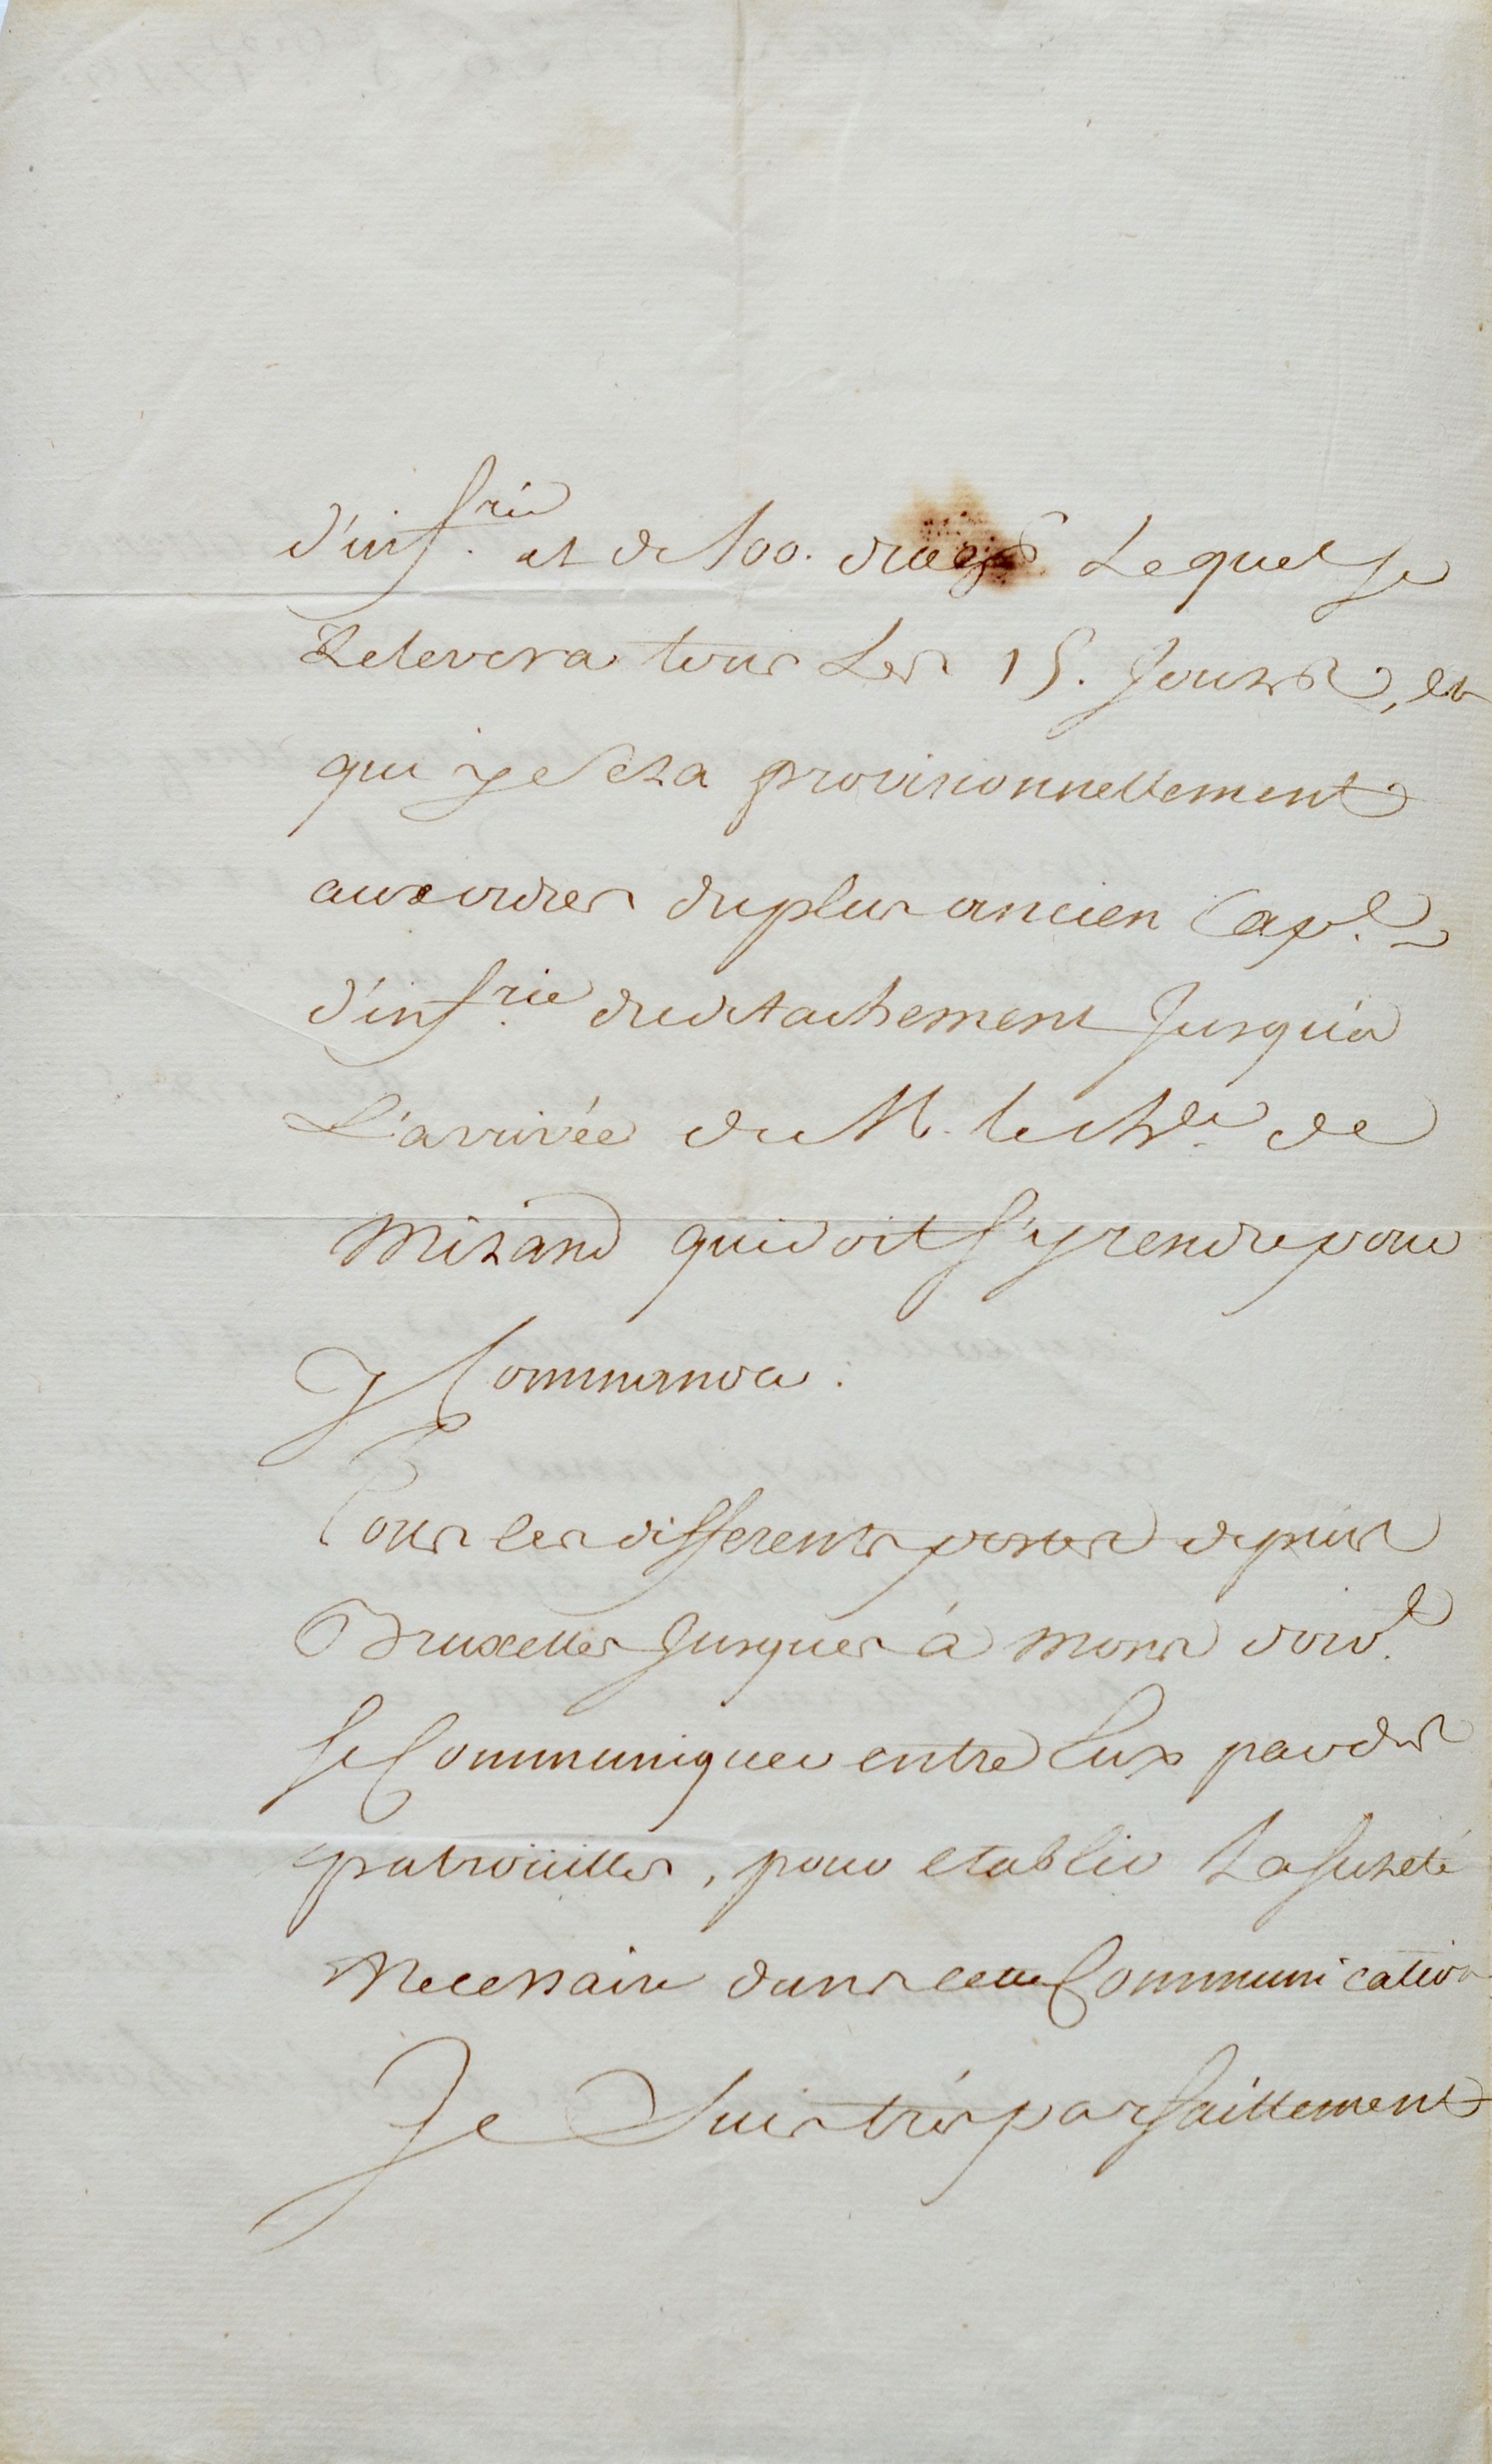 d'inf.rie et de 100. drag.s Lequel se
Relevera tous Les 15. Jours, et
qui y sera provisionnellement
aux ordres du plus ancien Cap.e
d'inf.rie du detachement Jusqu'a
L'arrivée de M. le Ch.er de
Mirand qui doit s'y rendre pour
y Commander.
Tous les differents postes depuis
Bruxelles Jusques à Mons doiv.t
se Communiquer entre Eux par des
patroüilles, pour etablir La sureté
Necessaire dans cette Communication
Je Suis très parfaittement